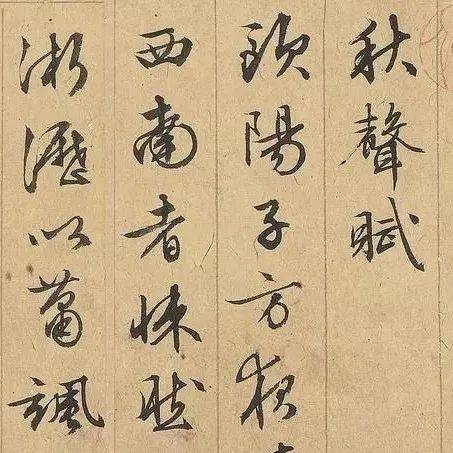 秋聲賦
歐陽子方夜
西南者悚然
淅瀝以蕭颯